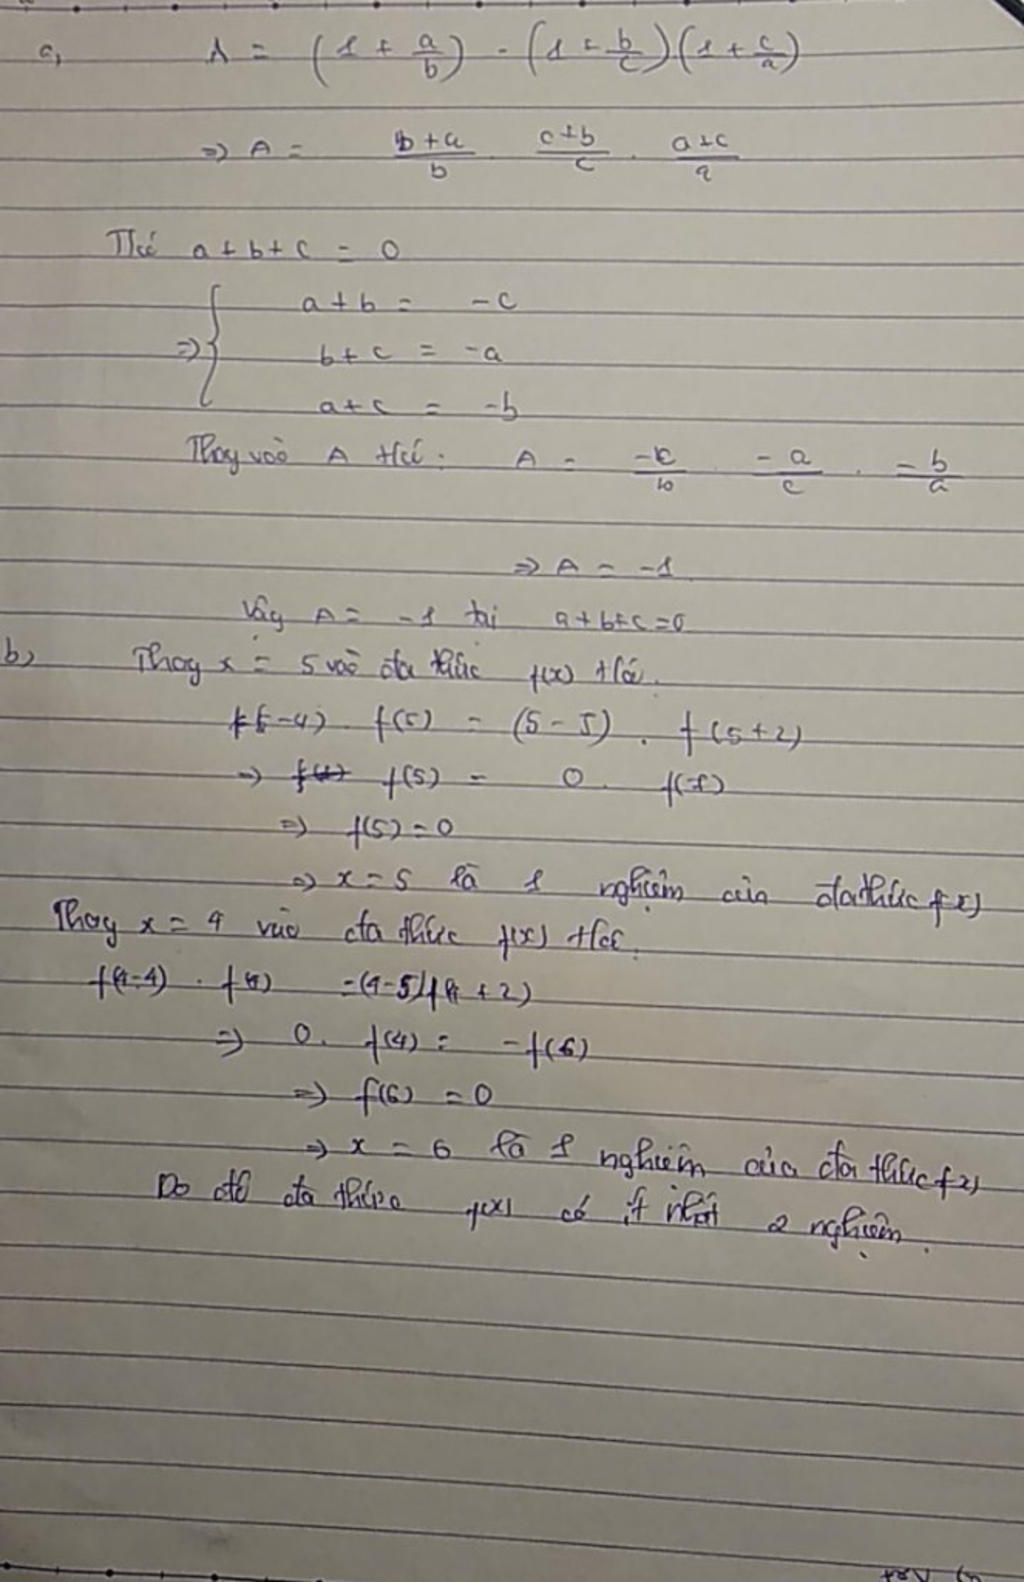 a, A = (1 + a/b) . (1 + b/c)(1 + c/a)
=> A = b+a/b . c+b/c . a+c/a
a+b+c = 0
a+b = -c
=> { b+c = -a
a+c = -b
Thay vào A A = -c/b . -a/c . -b/a
=> A = -1
Vậy A = -1 tại a+b+c=0
b, Thay x = 5 vào đa thức f(x)
. f(5) = (5-5) . f(5+2)
=> f(5) = 0 .
=> f(5) = 0
=> x = 5 là 1 nghiệm của đa thức f(x)
Thay x = 4 vào đa thức f(x)
f(4-4) . f(4) =(4-5)f(4+2)
=> 0. f(4) = -f(6)
=> f(6) = 0
=> x = 6 là 1 nghiệm của đa thức f(x)
Do đó đa thức f(x) có ít nhất 2 nghiệm.